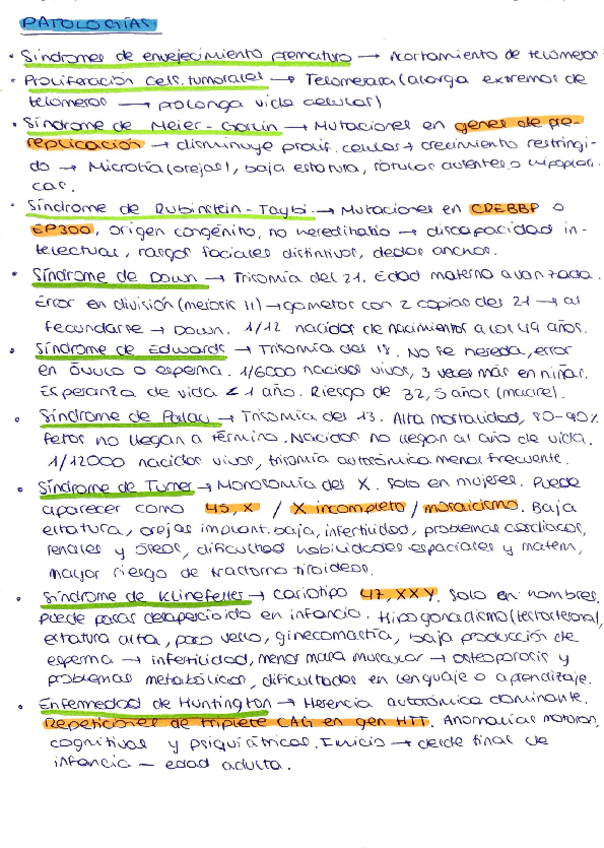 PATOLOGÍAS
· Síndromes de envejecimiento prematuro → Acortamiento de telómeros
· Proliferación cels. tumorales → Telomerasa (alarga extremos de
telómeros → prolonga vida celular)
· Síndrome de Meier-Gorlin → Mutaciones en genes de pre-
replicación → disminuye prolif. celular → crecimiento restringi-
do → Microtia (orejas), baja estatura, rótulas ausentes o hipoplási-
cas.
· Síndrome de Rubinstein-Taybi → Mutaciones en CREBBP o
EP300, origen congénito, no hereditario → discapacidad in-
telectual, rasgos faciales distintivos, dedos anchos.
· Síndrome de Down → Trisomía del 21. Edad materna avanzada.
Error en división (meiosis II) → gametos con 2 copias del 21 → al
fecundarse → Down. 1/12 nacidos de nacimientos a los 49 años.
· Síndrome de Edwards → Trisomía del 18. No se hereda, error
en óvulo o esperma. 1/6000 nacidos vivos, 3 veces más en niñas.
Esperanza de vida < 1 año. Riesgo de 32,5 años (madre).
· Síndrome de Patau → Trisomía del 13. Alta mortalidad, 80-90%
fetos no llegan a término. Nacidos no llegan al año de vida.
1/12000 nacidos vivos, trisomía autosómica menos frecuente.
· Síndrome de Turner → Monosomía del X. Solo en mujeres. Puede
aparecer como 45, X / X incompleto / mosaicismo. Baja
estatura, orejas implant. baja, infertilidad, problemas cardíacos,
renales y óseos, dificultad habilidades espaciales y matem,
mayor riesgo de trastorno tiroideos.
· Síndrome de Klinefelter → Cariotipo 47, XXY. Solo en hombres,
puede pasar desapercibido en infancia. Hipogonadismo (testosterona),
estatura alta, poco vello, ginecomastia, baja producción de
esperma → infertilidad, menor masa muscular → osteoporosis y
problemas metabólicos, dificultades en lenguaje o aprendizaje.
· Enfermedad de Huntington → Herencia autosómica dominante.
Repeticiones de triplete CAG en gen HTT. Anomalías motoras,
cognitivas y psiquiátricas. Inicio → desde final de
infancia — edad adulta.